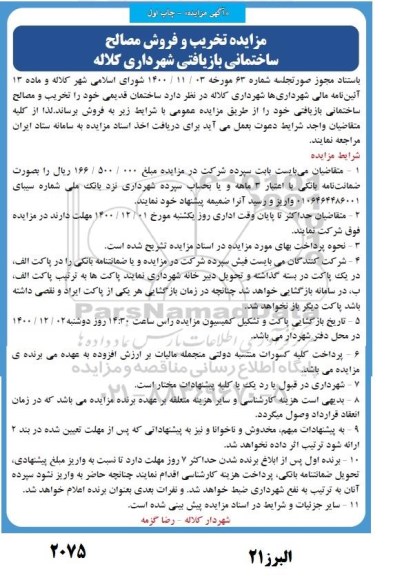 «آگهی مزایده» - چاپ اول
مزایده تخریب و فروش مصالح
ساختمانی بازیافتی شهرداری کلاله
باستناد مجوز صورتجلسه شماره ۶۳ مورخه ۰۳ / ۱۱ / ۱۴۰۰ شورای اسلامی شهر کلاله و ماده ۱۳
آئین‌نامه مالی شهرداری‌ها شهرداری کلاله در نظر دارد ساختمان قدیمی خود را تخریب و مصالح
ساختمانی بازیافتی خود را از طریق مزایده عمومی با شرایط زیر به فروش برساند.لذا از کلیه
متقاضیان واجد شرایط دعوت بعمل می آید برای دریافت اخذ اسناد مزایده به سامانه ستاد ایران
مراجعه نمایند.
شرایط مزایده
۱ - متقاضیان می‌بایست بابت سپرده شرکت در مزایده مبلغ ۰۰۰ / ۵۰۰ / ۱۶۶ ریال را بصورت
ضمانت‌نامه بانکی با اعتبار ۳ ماهه و یا بحساب سپرده شهرداری نزد بانک ملی شماره سیبای
واریز و رسید آنرا ضمیمه پیشنهاد خود نمایند.
۲ - متقاضیان حداکثر تا پایان وقت اداری روز یکشنبه مورخ ۰۱ / ۱۲ / ۱۴۰۰ مهلت دارند در مزایده
فوق شرکت نمایند.
۳ - نحوه پرداخت بهای مورد مزایده در اسناد مزایده تشریح شده است.
۴ - شرکت کنندگان می بایست فیش سپرده شرکت در مزایده و یا ضمانتنامه بانکی را در پاکت الف،
در یک پاکت در بسته گذاشته و تحویل دبیر خانه شهرداری نمایند پاکت ها به ترتیب پاکت الف،
ب، در سامانه بازگشایی خواهد شد چنانچه در زمان بازگشایی هر یکی از پاکت ایراد و نقصی داشته
باشد پاکت دیگر باز نخواهد شد.
۵ - تاریخ بازگشایی پاکت و تشکیل کمیسیون مزایده راس ساعت ۱۴:۳۰ روز دوشنبه ۰۲ / ۱۲ / ۱۴۰۰
در محل دفتر شهردار می باشد.
۶ - پرداخت کلیه کسورات متنسبه دولتی منجمله مالیات بر ارزش افزوده به عهده می برنده ی
مزایده می باشد.
۷ - شهرداری در قبول یا رد یک یا کلیه پیشنهادات مختار است.
۸ - بدیهی است هزینه کارشناسی و سایر هزینه متعلقه بر عهده برنده مزایده می باشد که در زمان
انعقاد قرارداد وصول میگردد.
۹ - به پیشنهادات مبهم، مخدوش و ناخوانا و نیز به پیشنهاداتی که پس از مهلت تعیین شده در بند ۲
ارائه شود ترتیب اثر داده نخواهد شد.
۱۰ - برنده اول پس از ابلاغ برنده شدن حداکثر ۷ روز مهلت دارد تا نسبت به واریز مبلغ پیشنهادی،
تحویل ضمانتنامه بانکی، پرداخت هزینه کارشناسی اقدام نمایند چنانچه حاضر به واریز نشود سپرده
آنان به ترتیب به نفع شهرداری ضبط خواهد شد. و نفرات بعدی بعنوان برنده اعلام خواهد شد.
۱۱ - سایر جزئیات و شرایط در اسناد مزایده پیش بینی شده است.
شهردار کلاله - رضا گزمه
البرز۲۱
۲۰۷۵